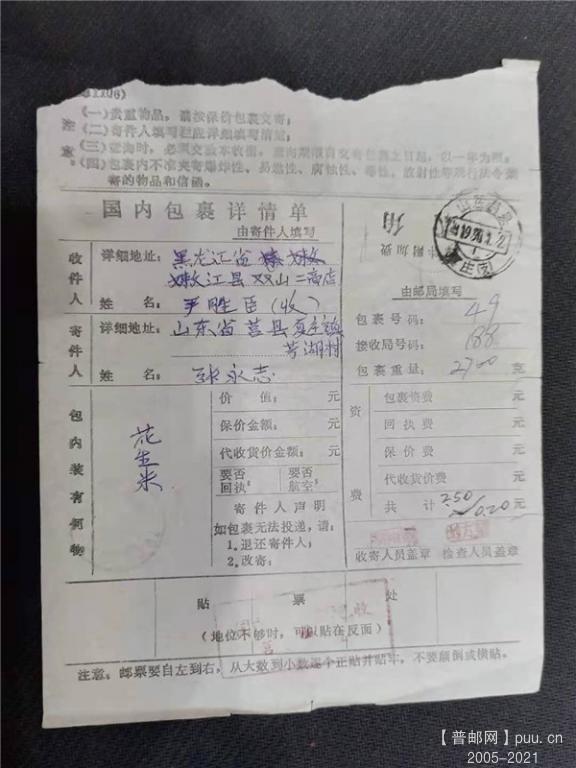 (一)贵重物品，请按保价包裹交寄；
注
(二)寄件人填写栏应详细填写清楚；
意
(四)包裹内不准夹寄爆炸性、易燃性、腐蚀性、毒性、放射性等现行法令禁
寄的物品和信函。
国内包裹详情单
由寄件人填写
附加费
角
收件人
详细地址：黑龙江省嫩
嫩江县双山二商店
姓名：尹胜臣(收)
寄件人
详细地址：山东省莒县夏庄镇
湖村
姓名：张永志
由邮局填写
包裹号码：49
接收局号码：188
包裹重量：2700 克
包内装有何物
花生米
价值： 元
保价金额： 元
代收货价金额： 元
要否回执：
要否航空：
寄件人声明
如包裹无法投递，请：
1.退还寄件人；
2.改寄：
资费
包裹资费 元
回执费 元
保价费 元
代收货价费 元
共计 2.50 0.20 元
收寄人员盖章 检查人员盖章
贴票处
(地位不够时，可以贴在反面)
注意：邮票要自左到右，从大数到小数逐个正贴并贴牢，不要颠倒或横贴。
【普邮网】puu.cn
2005-2021